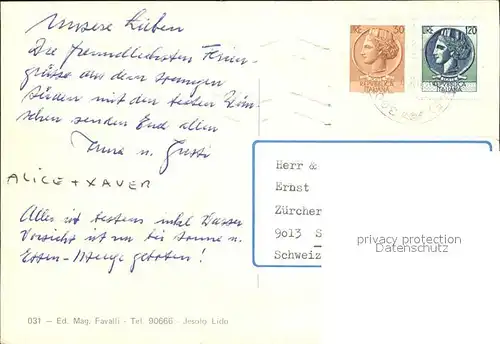 Unsere Lieben
Die freundlichsten Ferien-
grüsse aus dem sonnigen
Süden mit den besten Wün-
schen senden Euch allen
Irma u. Gusti
ALICE + XAVER
Alles ist bestens inkl. Wasser
Vorsicht ist nur bei Sonne u.
Essen-Menge geboten!
031 — Ed. Mag. Favalli - Tel. 90666 - Jesolo Lido
LIRE 30
REPUBBLICA
ITALIANA
LIRE 120
REPUBBLICA
ITALIANA
Herr &
Ernst
Zürcher
9013 S
Schweiz
privacy protection
Datenschutz